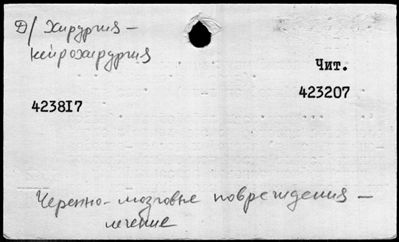 Д/ Хирургия –
нейрохирургия
Чит.
423207
423817
Черепно-мозговые повреждения –
лечение